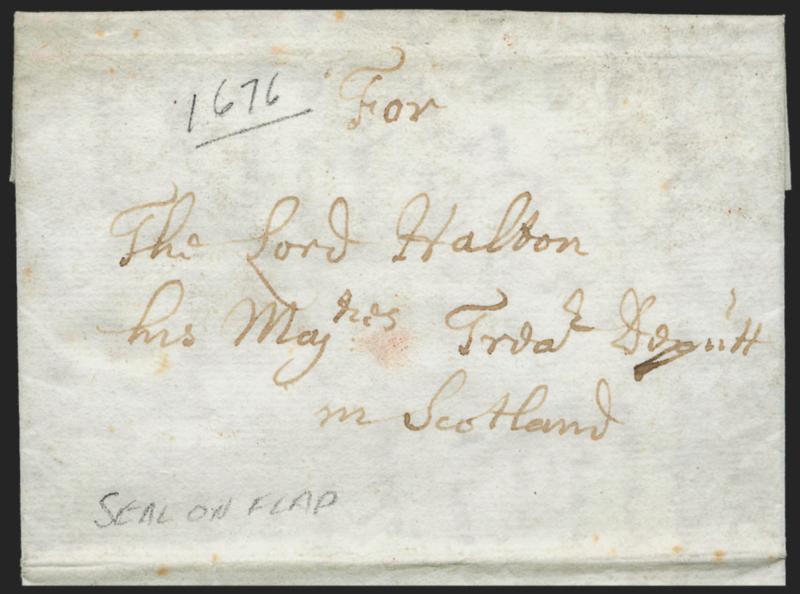 1676
For
The Lord Halton
his Maj^ties Trea^r Deputt
in Scotland
SEAL ON FLAP